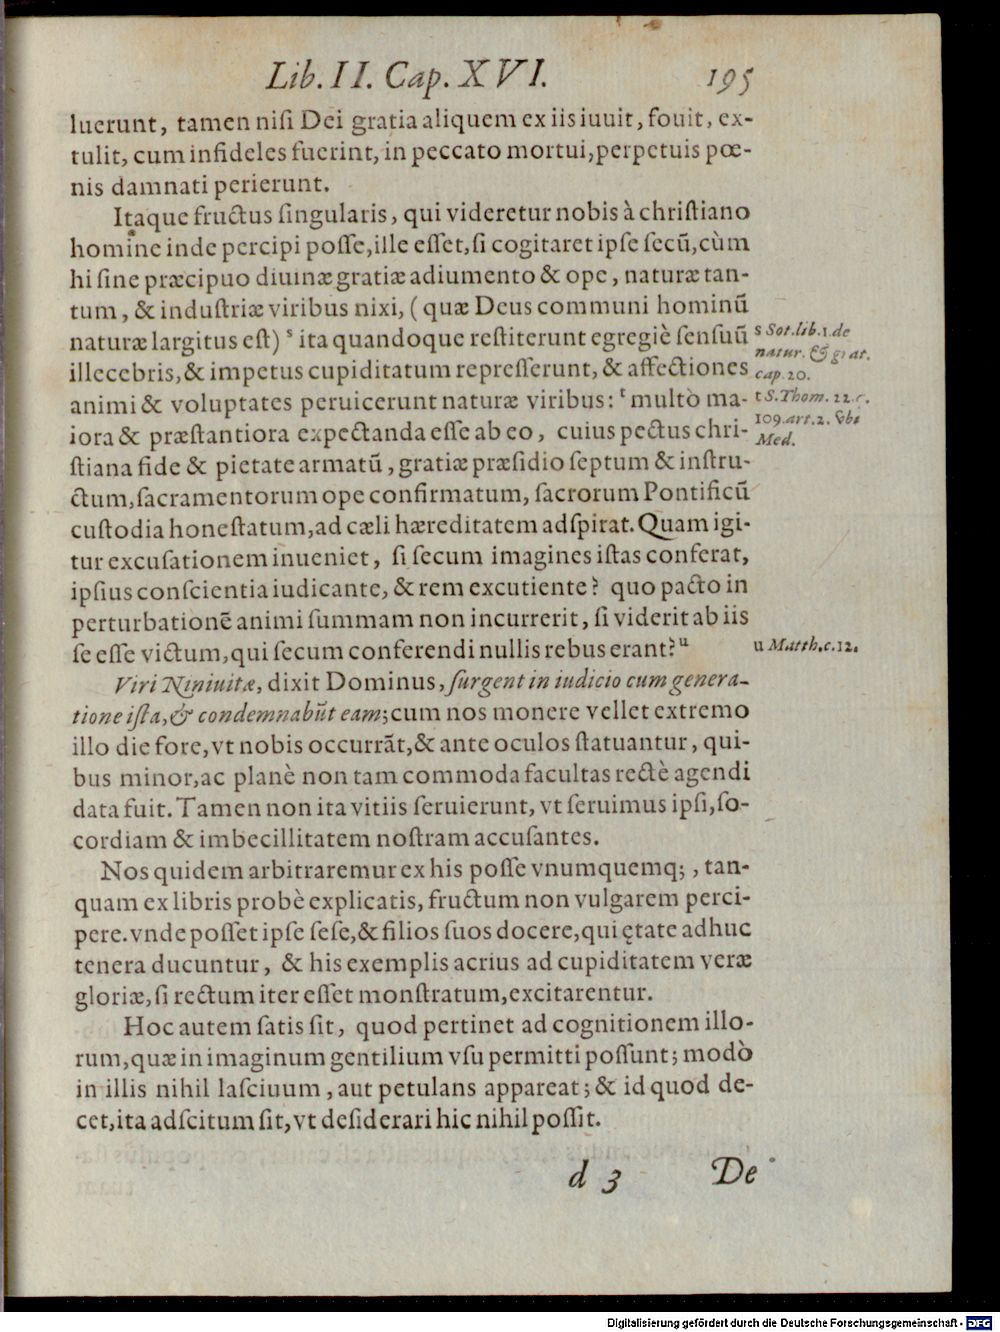 Lib. II. Cap. XVI. 195
luerunt, tamen niſi Dei gratia aliquem ex iis iuuit, fouit, ex-
tulit, cum infideles fuerint, in peccato mortui, perpetuis pœ-
nis damnati perierunt.
Itaque fructus ſingularis, qui videretur nobis à chriſtiano
homine inde percipi poſſe, ille eſſet, ſi cogitaret ipſe ſecũ, cùm
hi ſine præcipuo diuinæ gratiæ adiumento & ope, naturæ tan-
tum, & induſtriæ viribus nixi, (quæ Deus communi hominũ
naturæ largitus eſt) ˢ ita quandoque reſtiterunt egregiè ſenſuũ
illecebris, & impetus cupiditatum repreſſerunt, & affectiones
animi & voluptates peruicerunt naturæ viribus: ᵗ multò ma-
iora & præſtantiora expectanda eſſe ab eo, cuius pectus chri-
ſtiana fide & pietate armatũ, gratiæ præſidio ſeptum & inſtru-
ctum, ſacramentorum ope confirmatum, ſacrorum Pontificũ
cuſtodia honeſtatum, ad cæli hæreditatem adſpirat. Quam igi-
tur excuſationem inueniet, ſi ſecum imagines iſtas conferat,
ipſius conſcientia iudicante, & rem excutiente? quo pacto in
perturbationẽ animi ſummam non incurrerit, ſi viderit ab iis
ſe eſſe victum, qui ſecum conferendi nullis rebus erant? ᵘ
s Sot. lib. 1. de
natur. & grat.
cap. 20.
t S. Thom. 22. c.
109. art. 2. vbi
Med.
u Matth. c. 12.
Viri Niniuitæ, dixit Dominus, ſurgent in iudicio cum genera-
tione iſta, & condemnabũt eam; cum nos monere vellet extremo
illo die fore, vt nobis occurrãt, & ante oculos ſtatuantur, qui-
bus minor, ac planè non tam commoda facultas rectè agendi
data fuit. Tamen non ita vitiis ſeruierunt, vt ſeruimus ipſi, ſo-
cordiam & imbecillitatem noſtram accuſantes.
Nos quidem arbitraremur ex his poſſe vnumquemq;, tan-
quam ex libris probè explicatis, fructum non vulgarem perci-
pere. vnde poſſet ipſe ſeſe, & filios ſuos docere, qui ętate adhuc
tenera ducuntur, & his exemplis acrius ad cupiditatem veræ
gloriæ, ſi rectum iter eſſet monſtratum, excitarentur.
Hoc autem ſatis ſit, quod pertinet ad cognitionem illo-
rum, quæ in imaginum gentilium vſu permitti poſſunt; modò
in illis nihil laſciuum, aut petulans appareat; & id quod de-
cet, ita adſcitum ſit, vt deſiderari hic nihil poſſit.
d 3 De
Digitalisierung gefördert durch die Deutsche Forschungsgemeinschaft - DFG